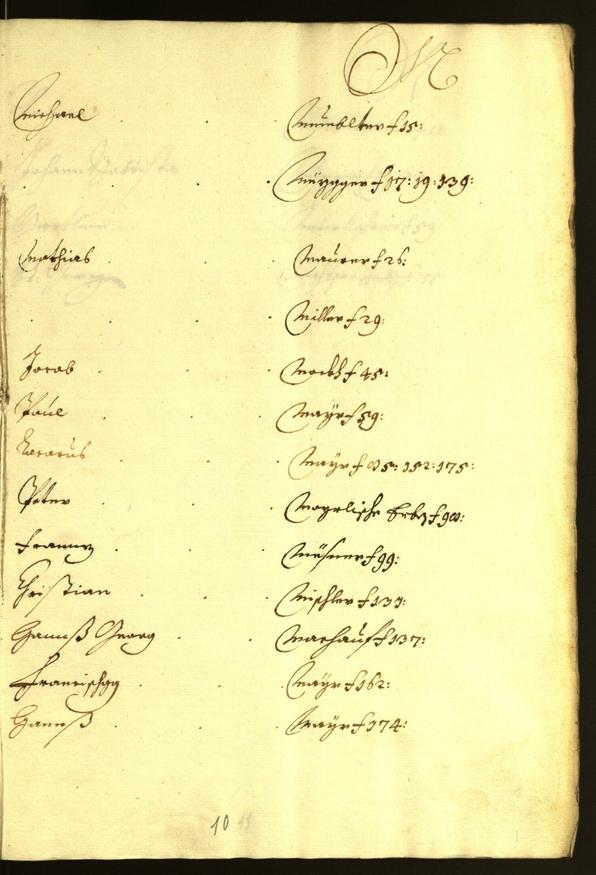 M
Michael . . Mueblter f 15:
. . . Müzgger f 17: 19: 139:
Mathias . . Maurer f 26:
. . . Miller f 29:
Jacob . . f 45:
Paul . . Mayr f 59:
Lazarus . . Mayr f 85: 152: 175:
Peter . . Mayrlische Erben f 98:
Franz . . Mösner f 99:
Christian . . Mischler f 133:
Hannß Georg . . Machauf f 137:
Francischgg . . Mayr f 162:
Hannß . . Mayr f 174:
10